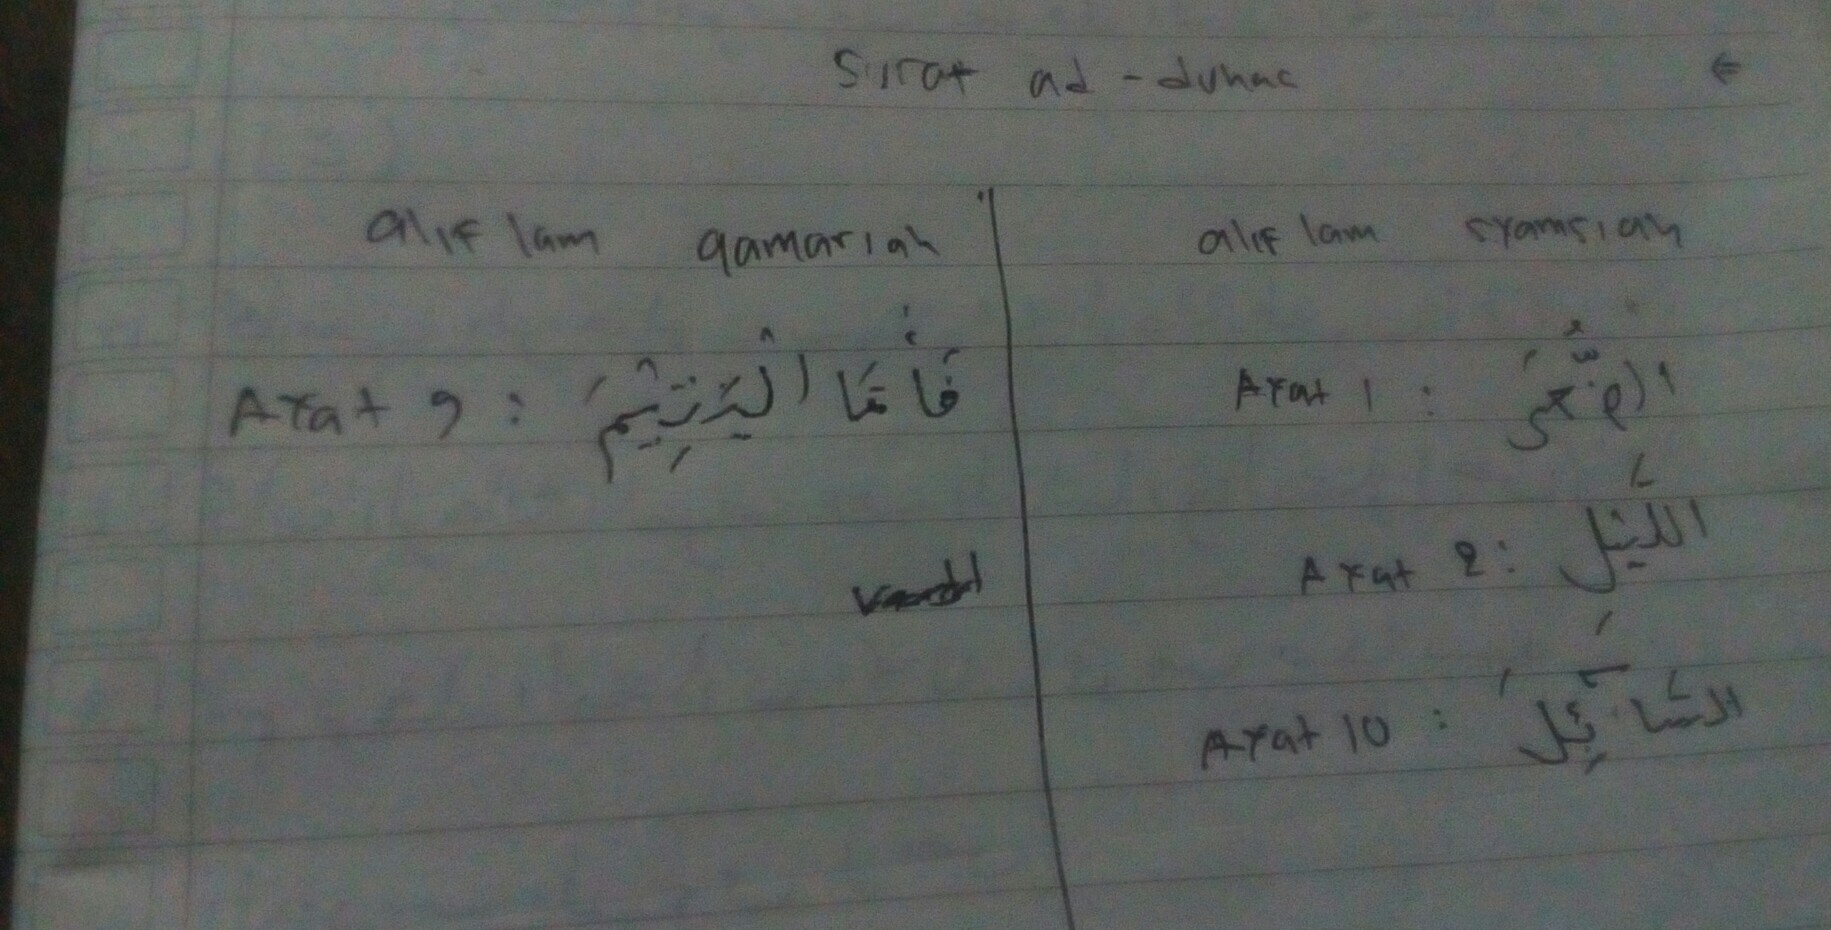 Surat ad-duhac
alif lam qamariah
alif lam syamsiah
Ayat 9 : فَأَمَّا الْيَتِيْمَ
Ayat 1 : الضُّحَى
Ayat 2 : اللَّيْل
Ayat 10 : السَّآئِلَ